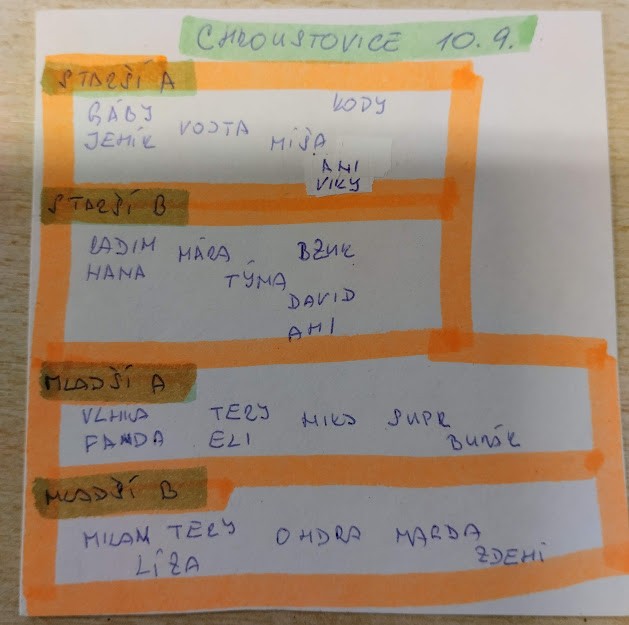 CHROUSTOVICE 10.9.
STARŠÍ A
GÁBY KODY
JENÍK VOJTA MÍŠA
ANI
VIKY
STARŠÍ B
RADIM MÁRA BZUK
HANA TÝMA
DAVID
ANI
MLADŠÍ A
VLNKA TERY NIKO SUPR
FANDA ELI BUROK
MLADŠÍ B
MILAN TERY ONDRA MAGDA
LÍZA ZDENI